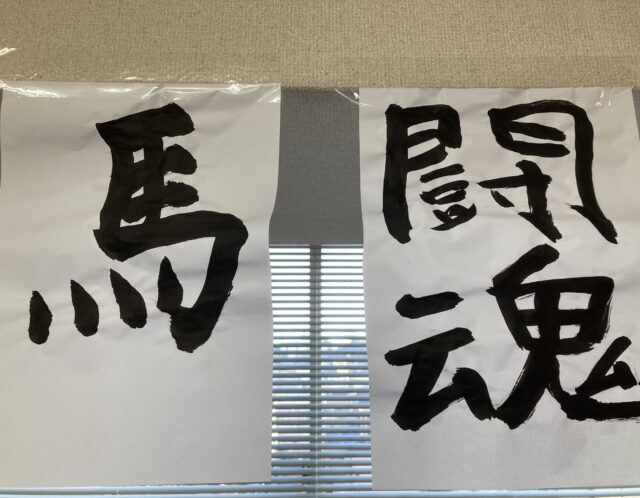 馬
闘
魂